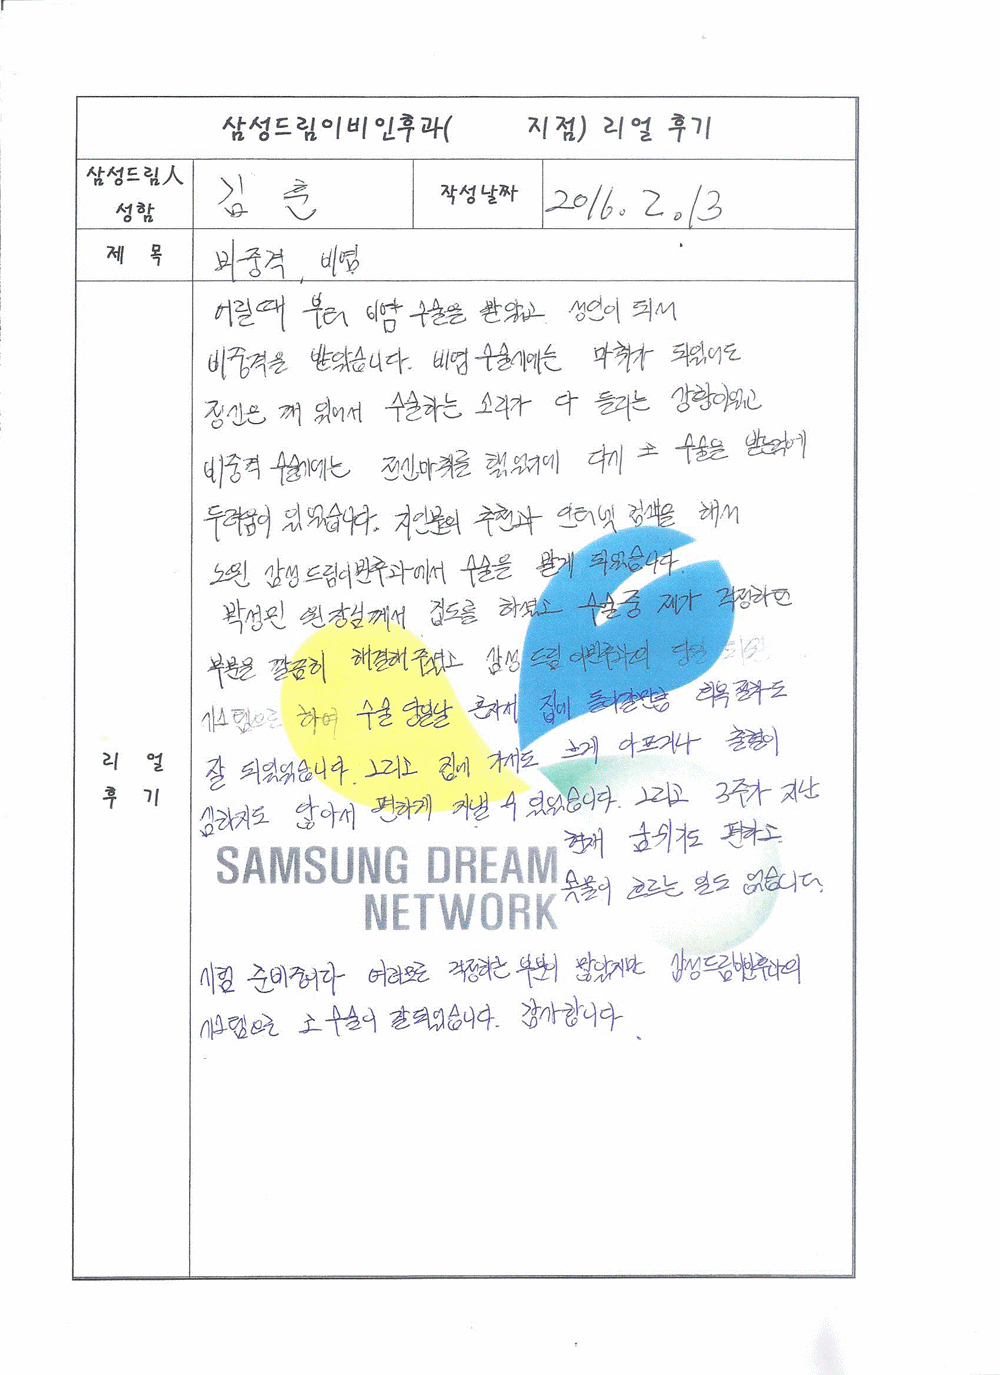 삼성드림이비인후과( 지점) 리얼 후기
삼성드림人 성함 김훈 작성날짜 2016. 2. 13
제 목 비중격, 비염
리 얼 후 기
어릴때 부터 비염 수술을 받았고 성인이 되서
비중격을 받았습니다. 비염 수술시에는 마취가 되있어도
정신은 깨 있어서 수술하는 소리가 다 들리는 상황이었고
비중격 수술시에는 전신마취를 했었기에 다시 또 수술을 받는것에
두려움이 있었습니다. 지인분의 추천과 인터넷 검색을 해서
노원 삼성드림이비인후과에서 수술을 받게 되었습니다.
박성민 원장님께서 집도를 하셨고 수술중 제가 걱정하던
부분을 깔끔히 해결해 주셨고 삼성 드림 이비인후과의 당일 퇴원
시스템으로 하여 수술 당일날 혼자서 집에 돌아갈만큼 회복 결과도
잘 되있었습니다. 그리고 집에 가서도 크게 아프거나 출혈이
심하지도 않아서 편하게 지낼 수 있었습니다. 그리고 3주가 지난
현재 숨쉬기도 편하고
콧물이 흐르는 일도 없습니다.
SAMSUNG DREAM
NETWORK
시험 준비중이라 여러모로 걱정하는 부분이 많았지만 삼성드림이비인후과의
시스템으로 또 수술이 잘되었습니다. 감사합니다.